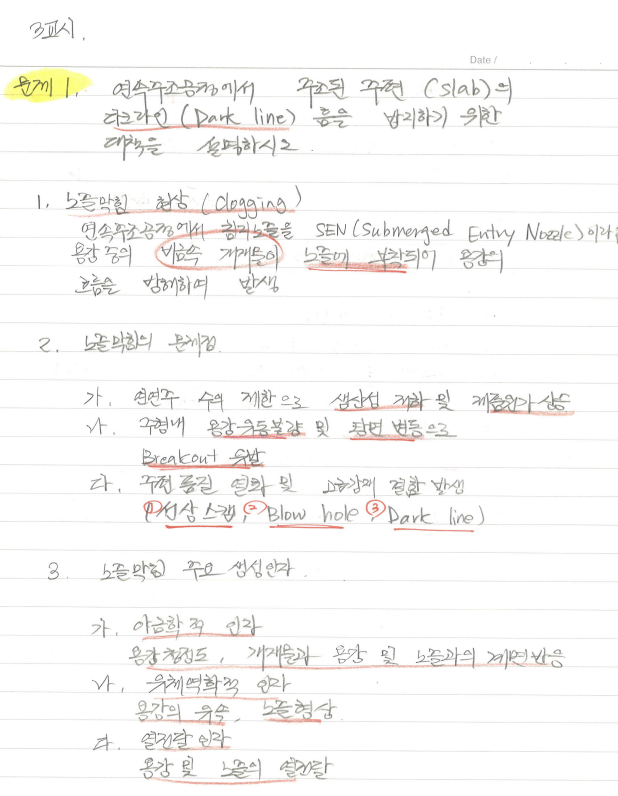 3교시.
Date /
문제 1. 연속주조공정에서 주조된 주편 (slab)의
다크라인 (Dark line) 흠을 방지하기 위한
대책을 설명하시오.
1. 노즐막힘 현상 (clogging)
연속주조공정에서 침지노즐을 SEN (Submerged Entry Nozzle)이라
용강 중의 비금속 개재물이 노즐에 부착되어 용강의
흐름을 방해하여 발생
2. 노즐막힘의 문제점
가. 연연주 수의 제한으로 생산성 저하 및 제품원가 상승
나. 주형내 용강유동불량 및 탕면 변동으로
Breakout 유발
다. 주편 품질 열화 및 고급강재 결함 발생
(① 선상 스캡, ② Blow hole, ③ Dark line)
3. 노즐막힘 주요 생성인자.
가. 야금학적 인자
용강청정도, 개재물과 용강 및 노즐과의 계면반응
나. 유체역학적 인자
용강의 유속, 노즐형상
다. 열전달 인자
용강 및 노즐의 열전달